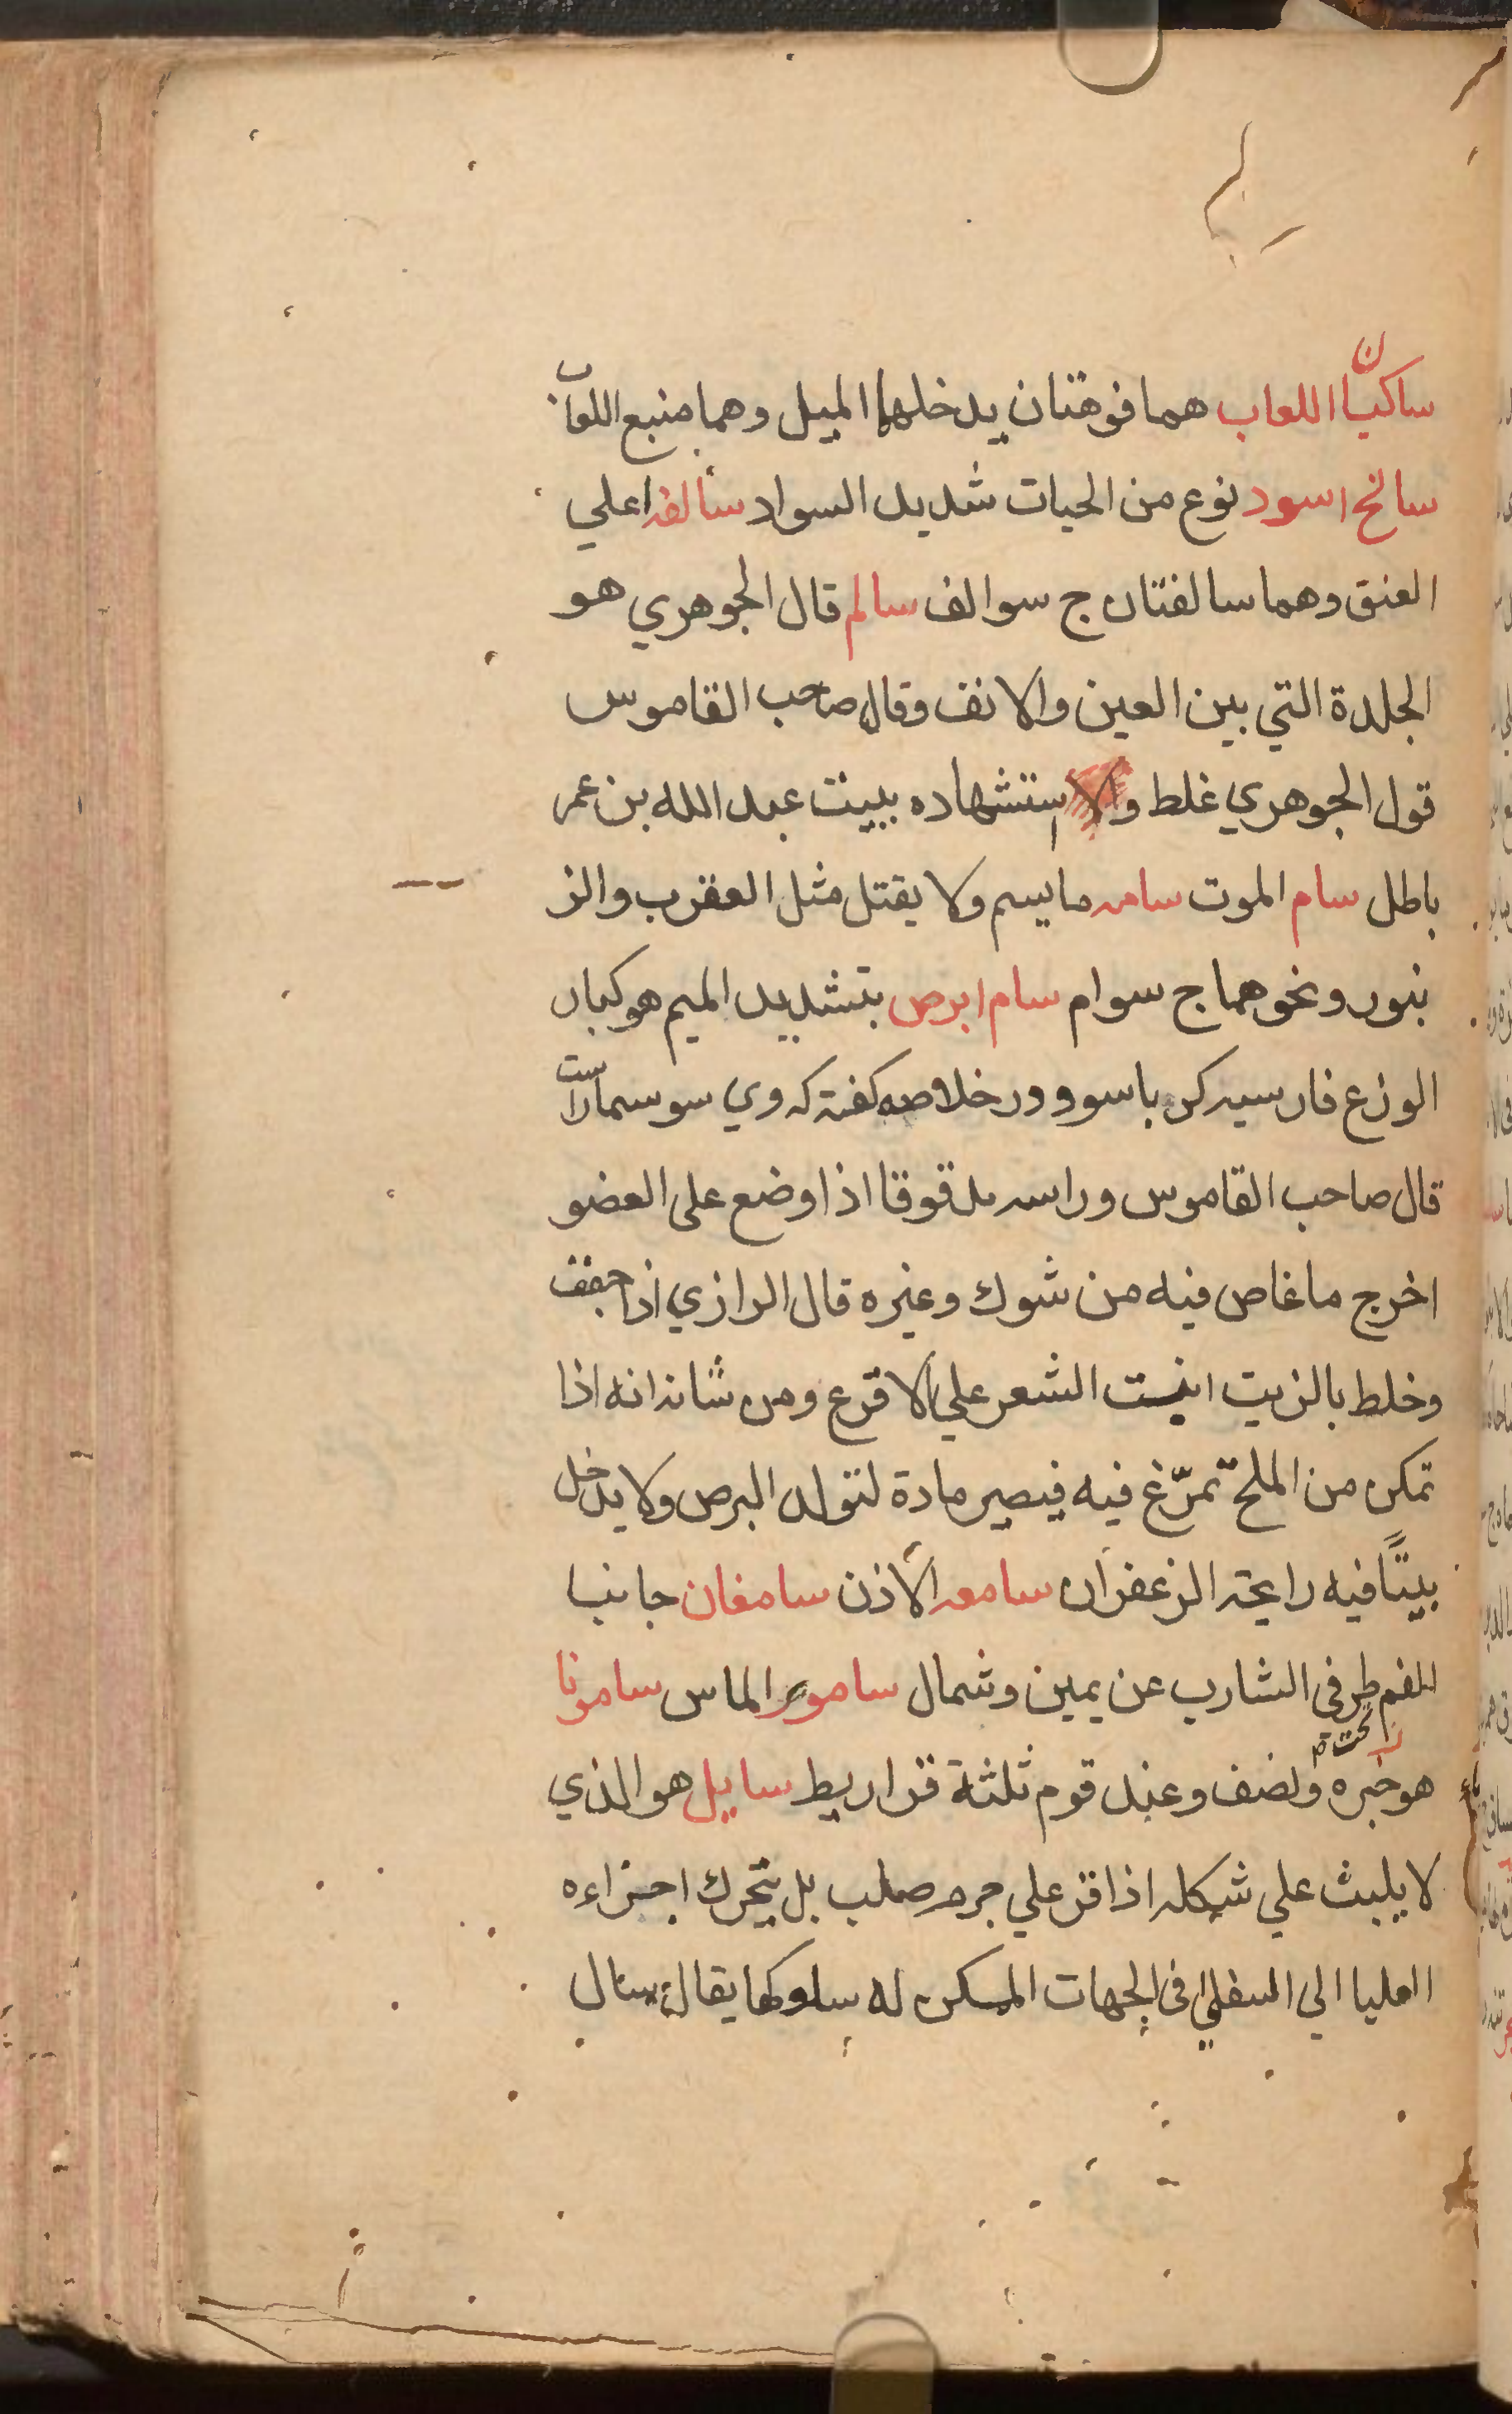 ساكبا اللعاب هما فوهتان يدخلهما الميل وهما منبع اللعاب
سالخ اسود نوع من الحيات شديد السواد سالفه اعلي
العنق وهما سالفتان ج سوالف سالم قال الجوهري هو
الجلدة التي بين العين والانف وقال صاحب القاموس
قول الجوهري غلط واستشهاده ببيت عبد الله بن عمر
باطل سام الموت سامه ما يسم ولا يقتل مثل العقرب والز
نبور ونحوهما ج سوام سام ابرص بتشديد الميم هو كبار
الوزع فارسيه كرباسو ودر خلاصه كفته كه وي سوسمار است
قال صاحب القاموس وراسه مدقوقا اذا وضع على العضو
اخرج ما غاص فيه من شوك وغيره قال الرازي اذا جفف
وخلط بالزيت انبت الشعر علي الاقرع ومن شانه انه اذا
تمكن من الملح تمرّغ فيه فيصير مادة لتولد البرص ولا يدخل
بيتًا فيه رايحة الزعفران سامعه الاذن سامغان جانبا
الفم طرفى الشارب عن يمين وشمال سامور الماس سامونا
تحت
هو ونصف وعند قوم ثلثة قراريط سايل هو الذي
لا يلبث علي شكله اذا قر علي جرم صلب بل يتحرك اجزاءه
العليا الي السفلي في الجهات الممكن له سلوكها يقال سال